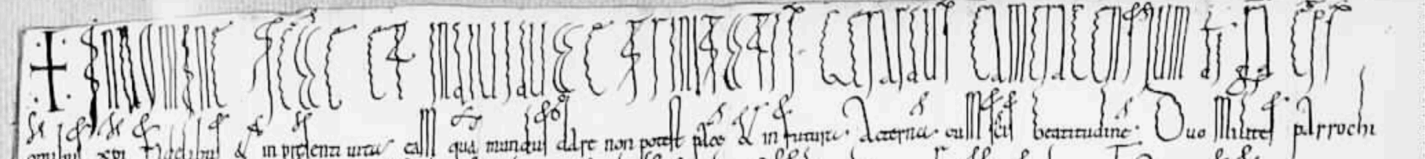 ✝ IN NOMINE SCE ET INDIVIDUE TRINITATIS. GERARDUS CAMERACENSIUM di gra eps
omnibus xpi fidelibus & in presenti uita eam quā mundus dare non potest pacē & in futuro. Aeternā cum scis beatitudinē. Duo Milites parrochi